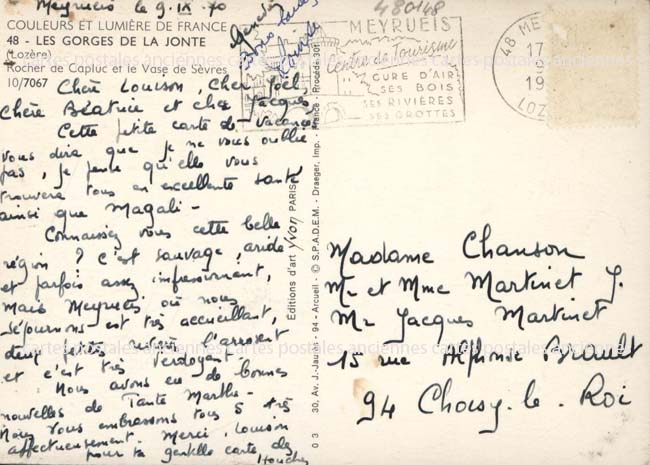 Meyrueis le 9.IX.70
COULEURS ET LUMIÈRE DE FRANCE
48 - LES GORGES DE LA JONTE
(Lozère)
Rocher de Capluc et le Vase de Sèvres
10/7067
Chère Louison, Cher Joël,
Chère Béatrice et cher Jacques,
Cette petite carte de vacances
vous dira que je ne vous oublie
pas, je pense qu'elle vous
trouvera tous en excellente santé
ainsi que Magali -
Connaissez vous cette belle
région ? C'est sauvage, aride
et parfois assez impressionnant,
mais Meyrueis où nous
séjournons est très accueillant,
deux petites rivières l'arrosent
et c'est très verdoyant.
Nous avons eu de bonnes
nouvelles de Tante Marthe -
Nous vous embrassons tous 5 très
affectueusement. Merci Louison
pour ta gentille carte des
Houches
Editions d'art Yvon PARIS
30, Av. J.-Jaurès - 94 - Arcueil - © S.P.A.D.E.M. - Draeger, Imp. - France - Procédé 301
0 3
480148
MEYRUEIS
Centre de Tourisme
CURE D'AIR
SES BOIS
SES RIVIÈRES
SES GROTTES
48 ME
17
19
LOZ
Madame Chanson
Mr et Mme Martinet J.
Mr Jacques Martinet
15 rue Alphonse Brault
94 Choisy-le-Roi
cartes postales anciennes cartes postales anciennes cartes postales anciennes